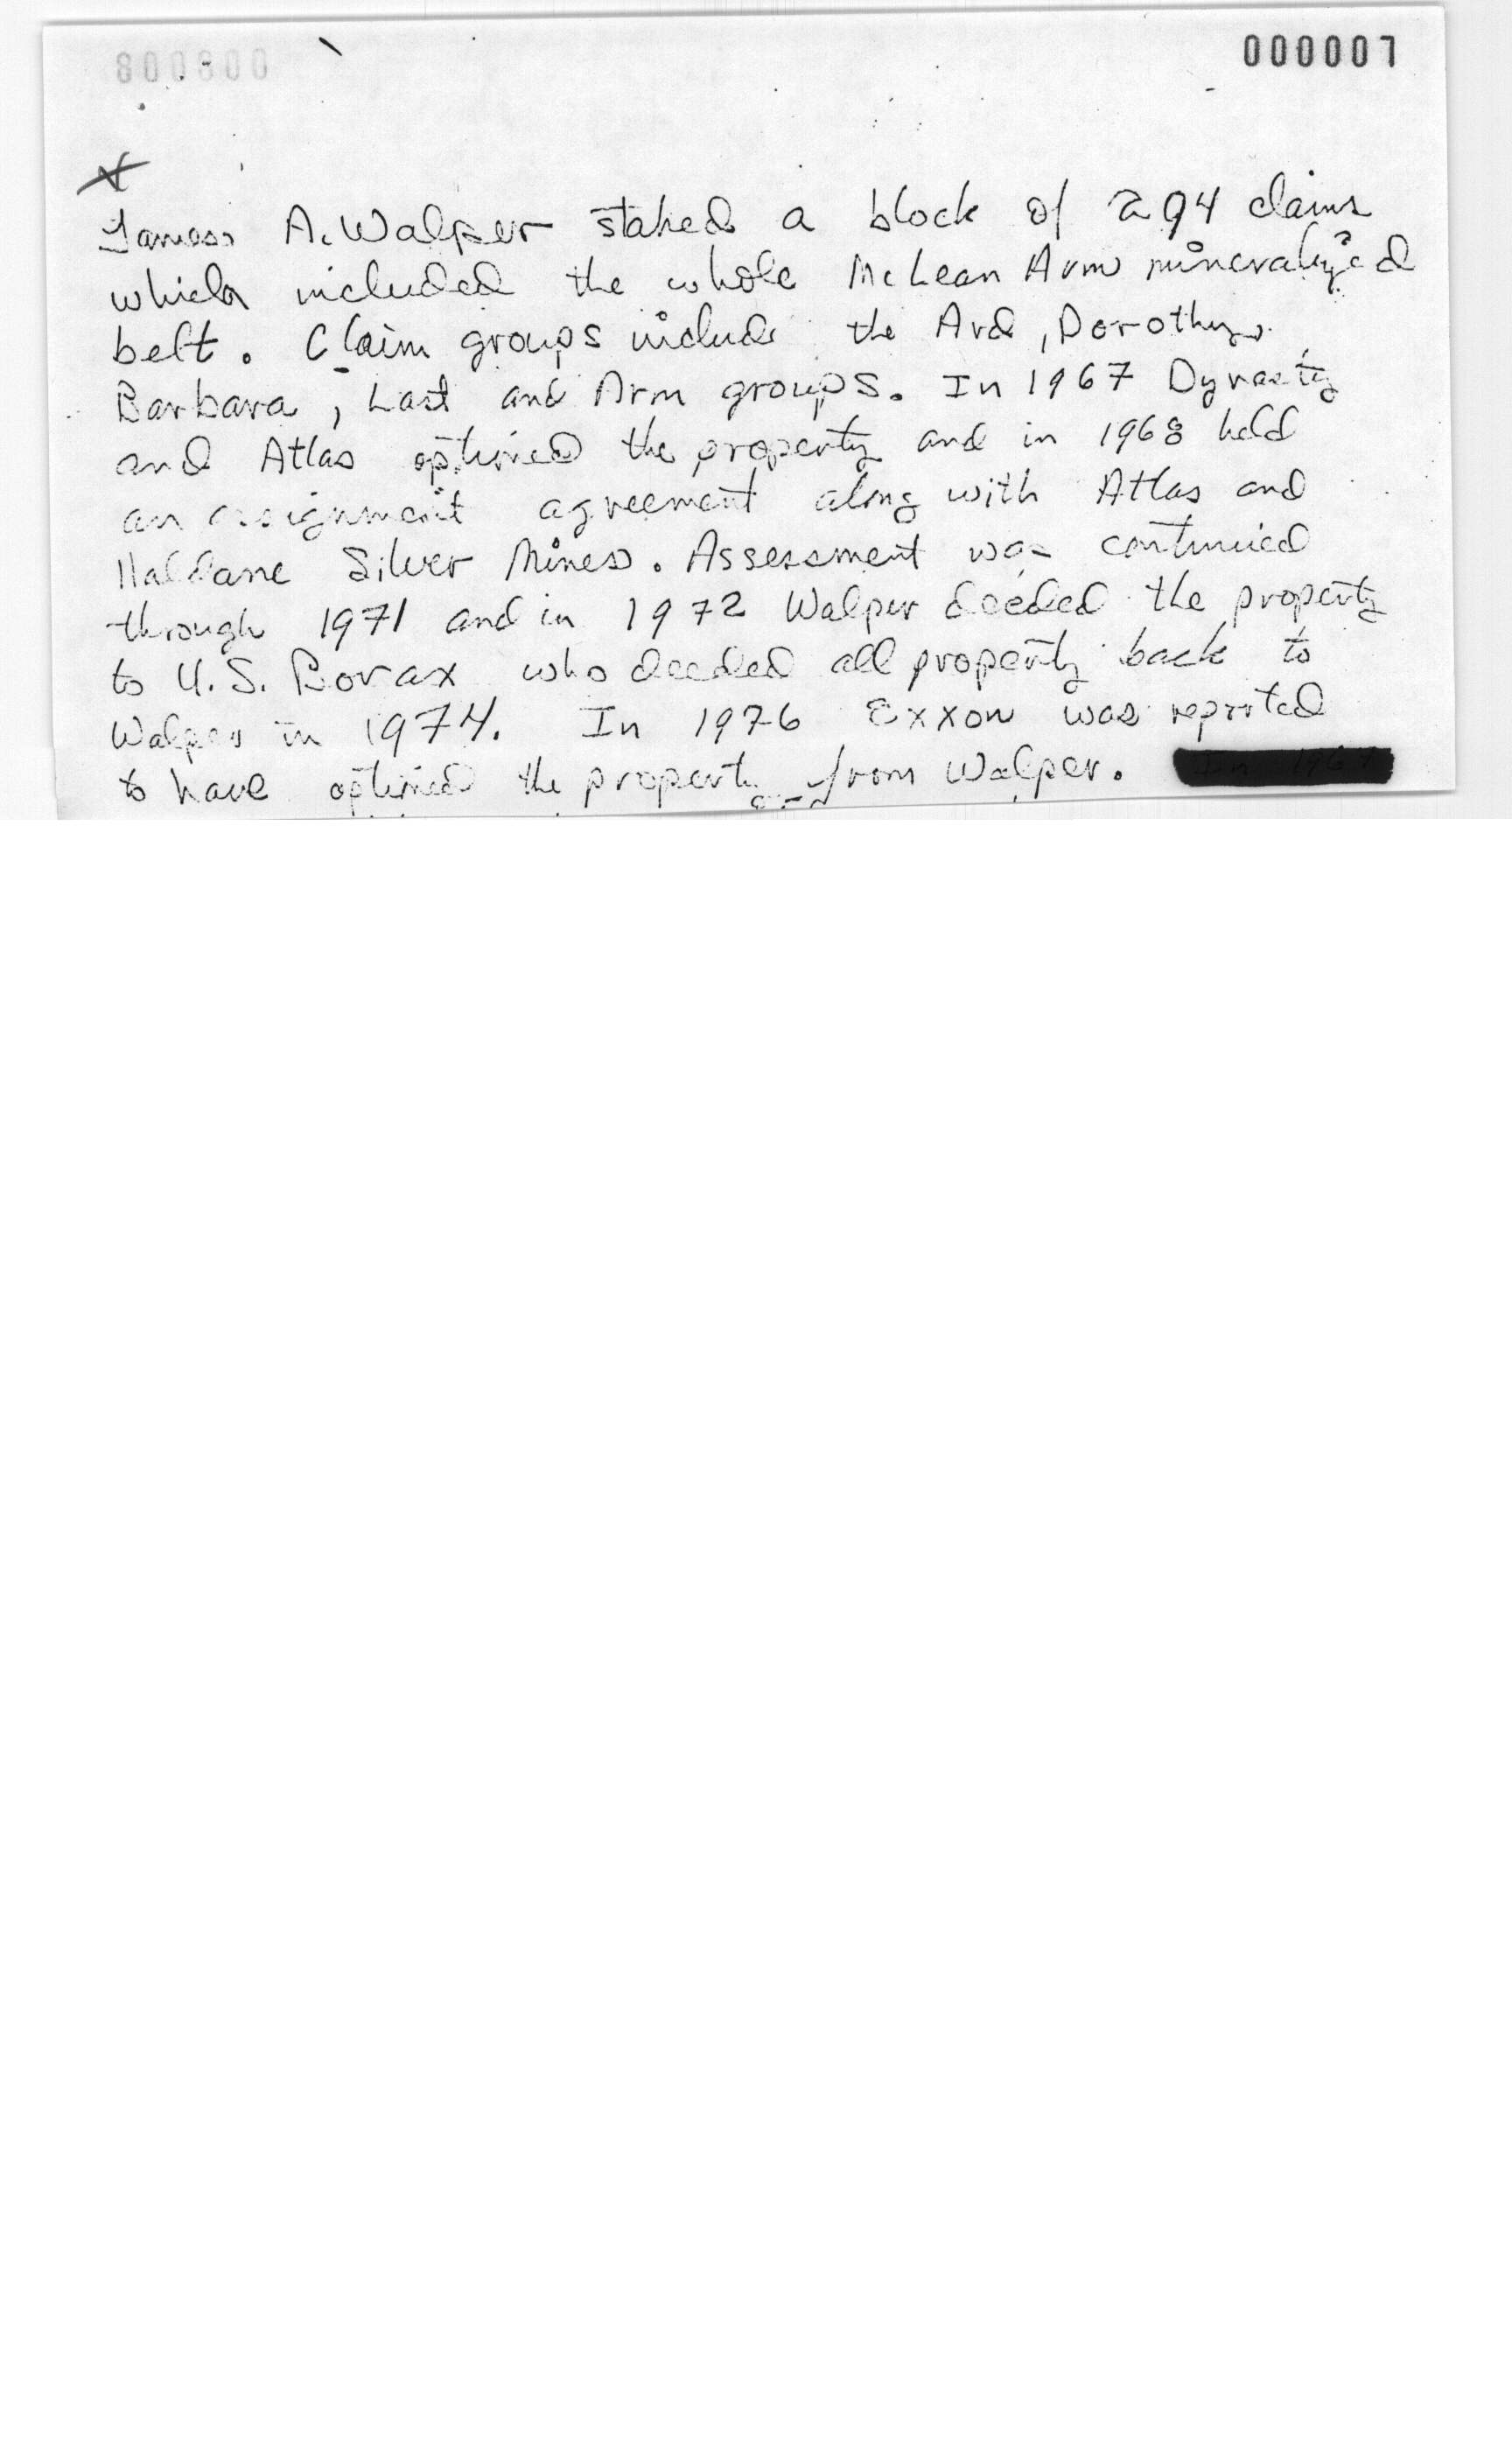 000007
James A. Walper staked a block of 294 claims
which included the whole McLean Arm mineralized
belt. Claim groups include the Ard, Dorothy,
Barbara, Last and Arm groups. In 1967 Dynasty
and Atlas optioned the property and in 1968 held
an assignment agreement along with Atlas and
Haldane Silver Mines. Assessment was continued
through 1971 and in 1972 Walper deeded the property
to U.S. Borax who deeded all property back to
Walper in 1974. In 1976 Exxon was reported
to have optioned the property from Walper.